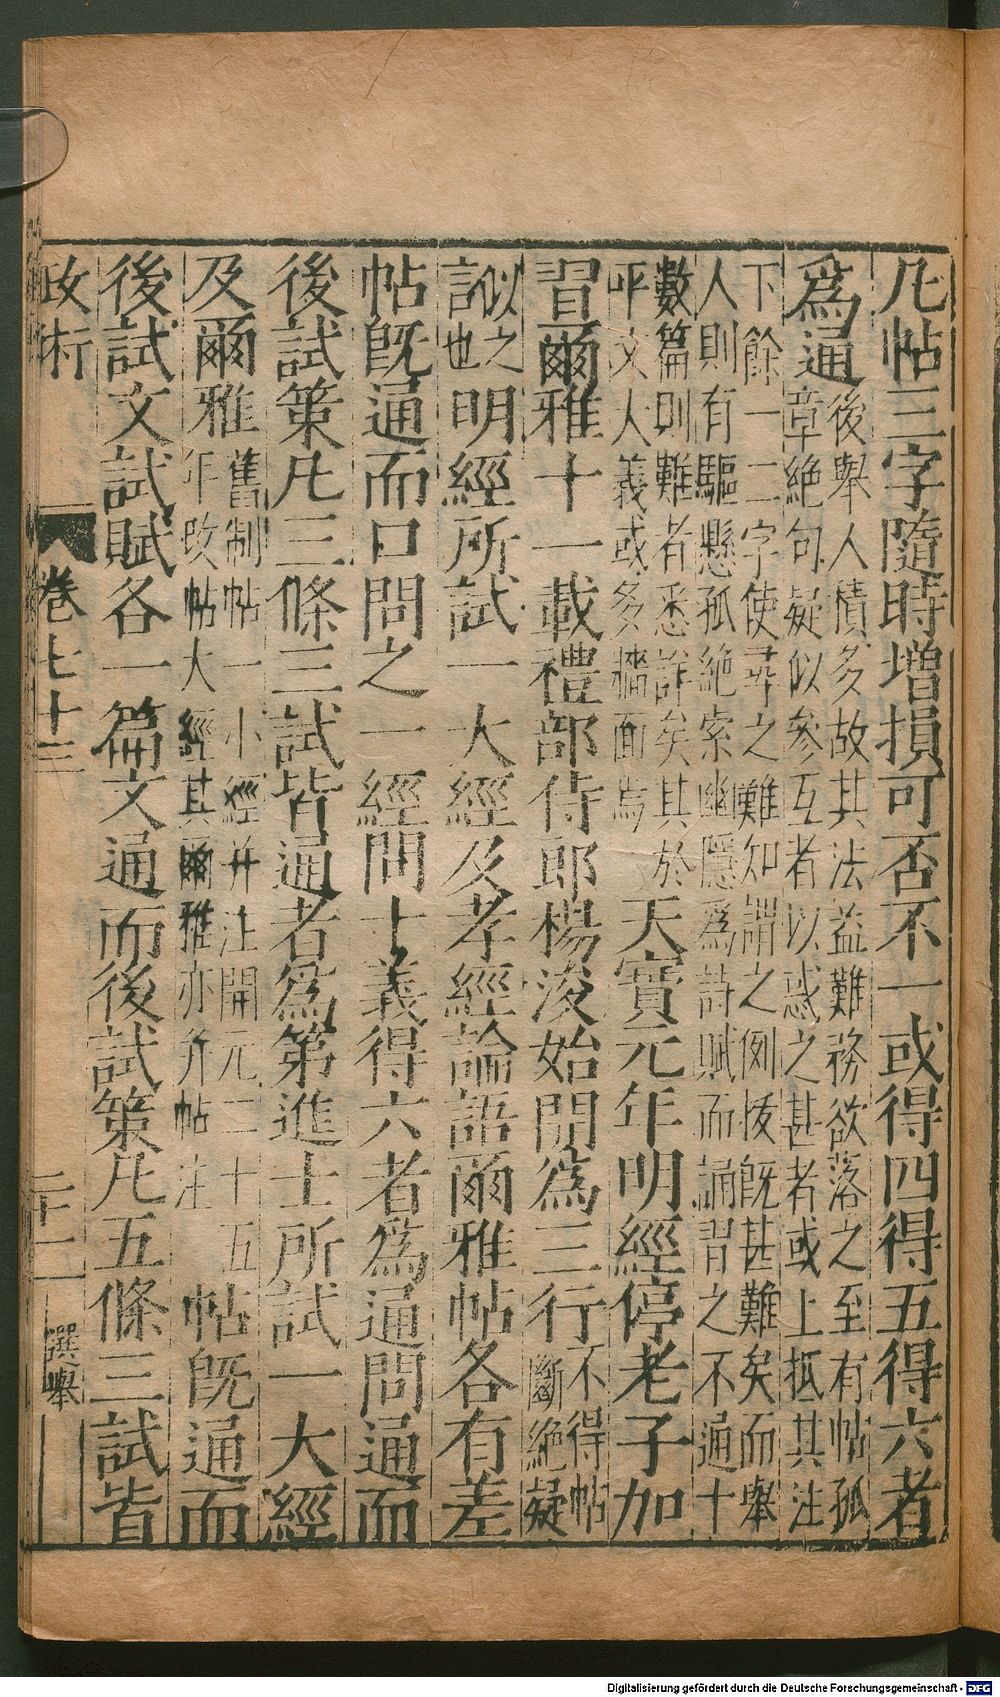 凡帖三字隨時增損可否不一或得四得五得六者
爲通
後舉人積多故其法益難務欲落之至有帖孤
章絶句疑似參互者以惑之甚者或上抵其注
下餘一二字使尋之難知謂之例拔既甚難矣而舉
人則有驅懸孤絶索幽隱爲詩賦而誦習之不通十
數篇則難者悉詳矣其於
平文人義或多牆面焉
天寶元年明經停老子加
習爾雅十一載禮部侍郎楊浚始開爲三行
不得帖
斷絶疑
似之
言也
明經所試一大經及孝經論語爾雅帖各有差
帖既通而口問之一經問十義得六者爲通問通而
後試策凡三條三試皆通者爲第進士所試一大經
及爾雅
舊制帖一小經并注開元二十五
年改帖大經其爾雅亦并帖注
帖既通而
後試文試賦各一篇文通而後試策凡五條三試皆
政術 卷七十三 二十二 選舉
Digitalisierung gefördert durch die Deutsche Forschungsgemeinschaft - DFG